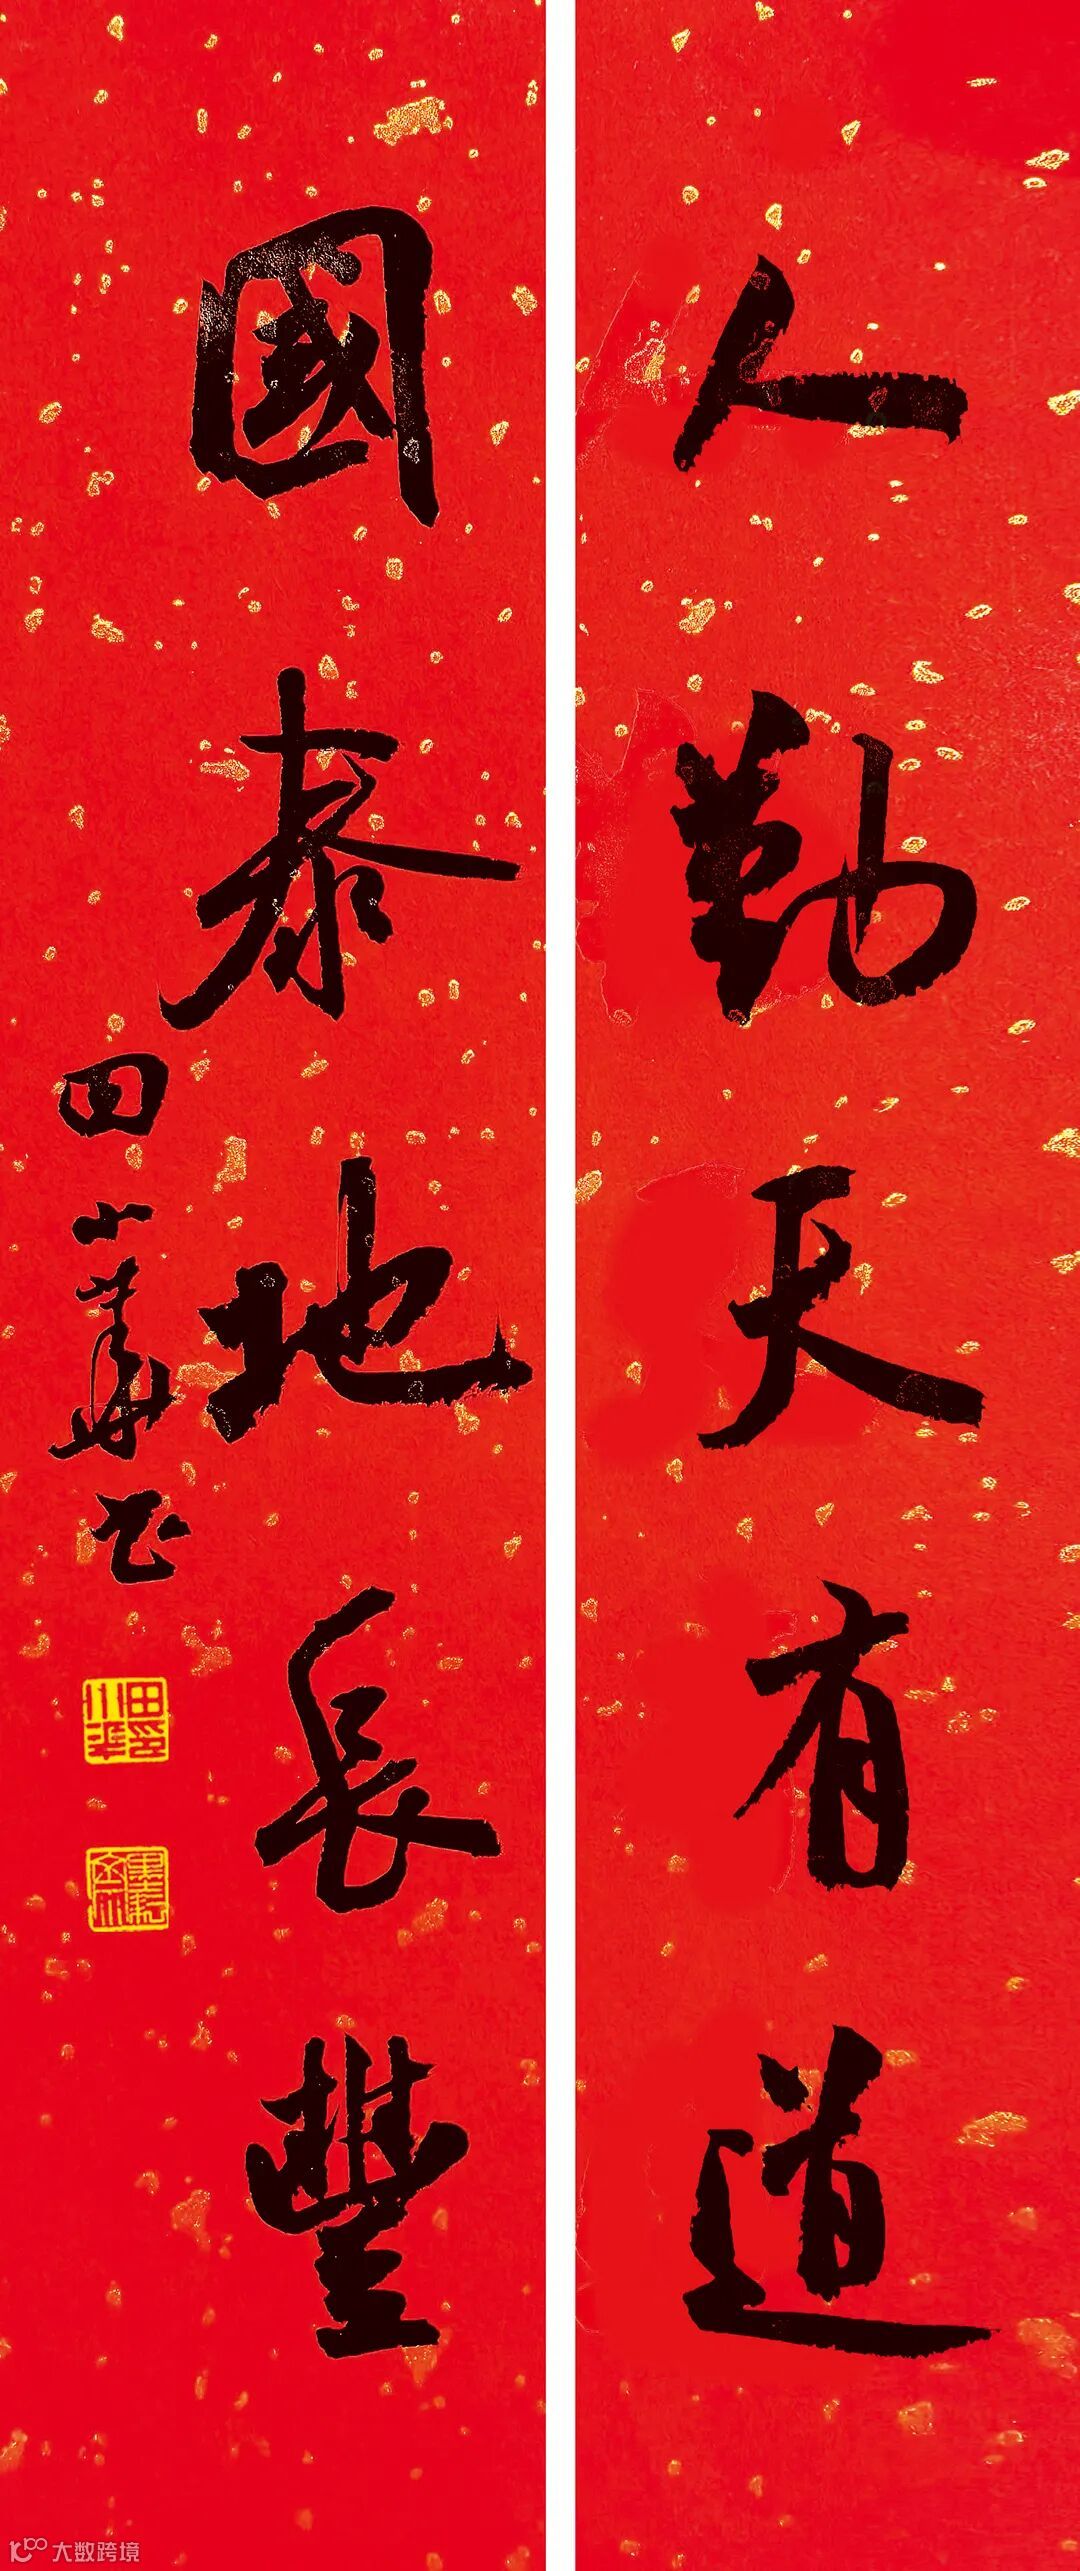 人勤天有道
國泰地長豐
田小華書
大数跨境